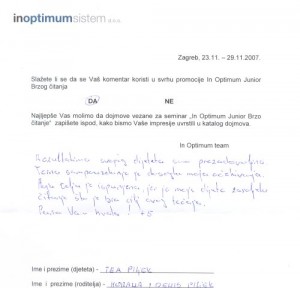 inoptimumsistem d.o.o.
Zagreb, 23.11. – 29.11.2007.
Slažete li se da se Vaš komentar koristi u svrhu promocije In Optimum Junior
Brzog čitanja
DA NE
Najljepše Vas molimo da dojmove vezane za seminar „In Optimum Junior Brzo
čitanje" zapišete ispod, kako bismo Vaše impresije uvrstili u katalog dojmova.
In Optimum team
Rezultatima svojeg djeteta sam
je moja očekivanja.
je jer je moje dijete zavoljelo
čitanje što je bio cilj ovog tečaja.
Puno Vam hvala! +5
Ime i prezime (djeteta) - TEA
Ime i prezime (roditelja) - I DENIS